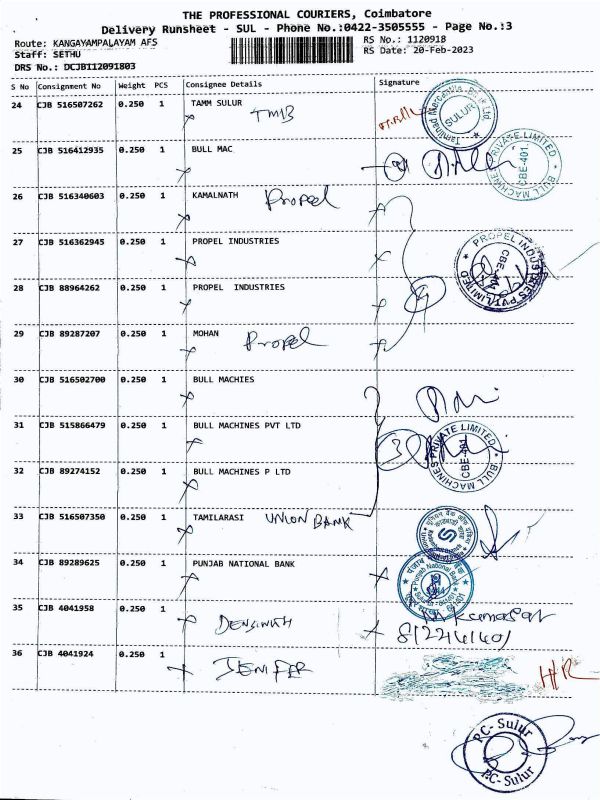 THE PROFESSIONAL COURIERS, Coimbatore
Delivery Runsheet - SUL - Phone No.:0422-3505555 - Page No.:3
Route: KANGAYAMPALAYAM AFS
RS No.: 1120918
Staff: SETHU
RS Date: 20-Feb-2023
DRS No.: DCJB112091803
S No Consignment No Weight PCS Consignee Details Signature
24 CJB 516507262 0.250 1 TAMM SULUR TMB
Tamilnad Mercantile Bank Ltd
SULUR
25 CJB 516412935 0.250 1 BULL MAC
BULL MACHINES PRIVATE LIMITED
CBE-401.
26 CJB 516340603 0.250 1 KAMALNATH Propel
27 CJB 516362945 0.250 1 PROPEL INDUSTRIES
PROPEL INDUSTRIES PVT LIMITED
28 CJB 88964262 0.250 1 PROPEL INDUSTRIES 4
29 CJB 89287207 0.250 1 MOHAN Propel
30 CJB 516502700 0.250 1 BULL MACHIES
31 CJB 515866479 0.250 1 BULL MACHINES PVT LTD 3
BULL MACHINES PRIVATE LIMITED
CBE-401
32 CJB 89274152 0.250 1 BULL MACHINES P LTD
33 CJB 516507350 0.250 1 TAMILARASI UNION BANK
34 CJB 89289625 0.250 1 PUNJAB NATIONAL BANK
Punjab National Bank
35 CJB 4041958 0.250 1
36 CJB 4041924 0.250 1 JENIFER HR
PC- Sulur
PC- Sulur